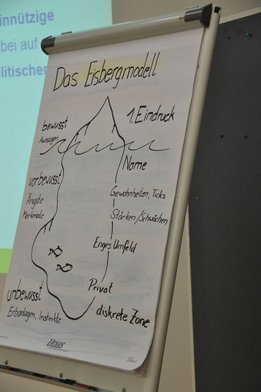 innützige
bei auf
litischer
Das Eisbergmodell
1. Eindruck
bewusst
Aussagen
Name
vorbewusst
Ängste
Merkmale
Gewohnheiten, Ticks
Stärken/Schwächen
Enges Umfeld
Privat
unbewusst
Erbanlagen, Instinkte
diskrete Zone